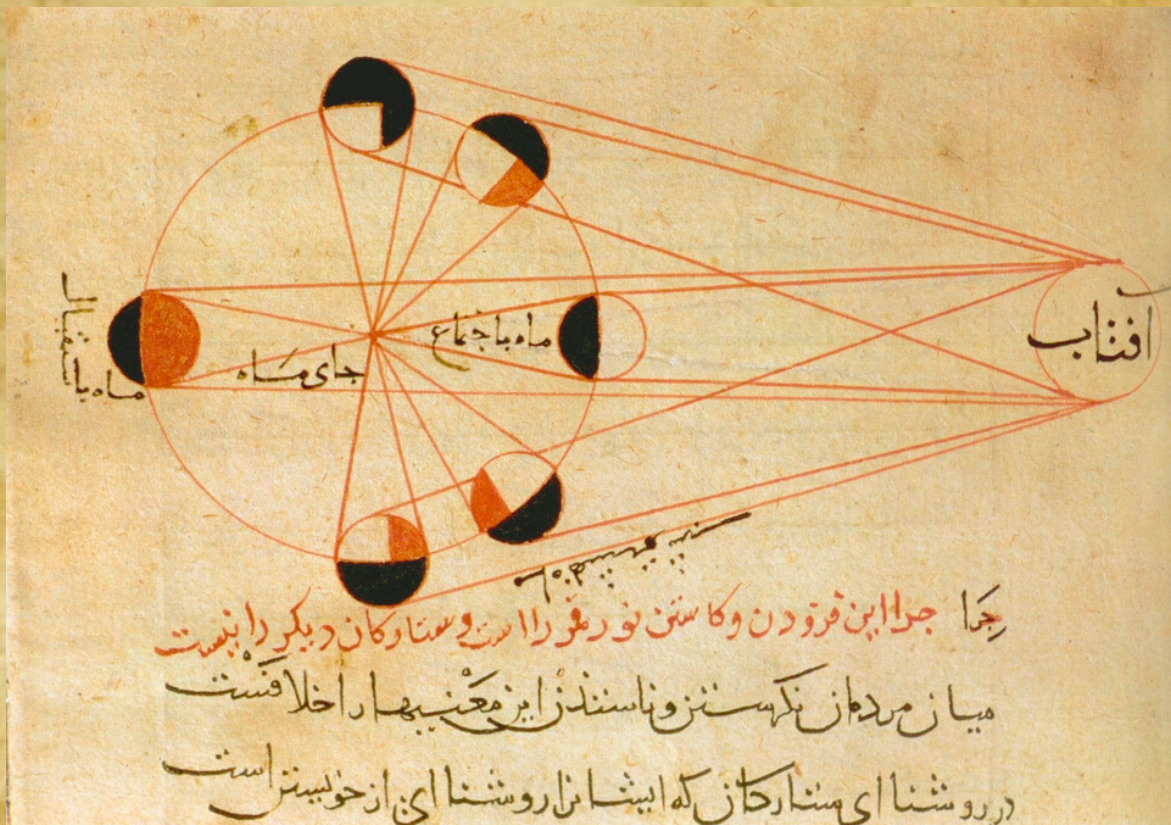 آفتاب
ماه باجتماع
جای ماه
ماه باستقبال
جرا جرا این فزودن و کاستن نور قمر را است و ستارکان دیکر را نیست
میان مردمان این معنیها را خلافست
در روشنا ای ستارکان که ایشانرا روشنا ای از خویشتن است